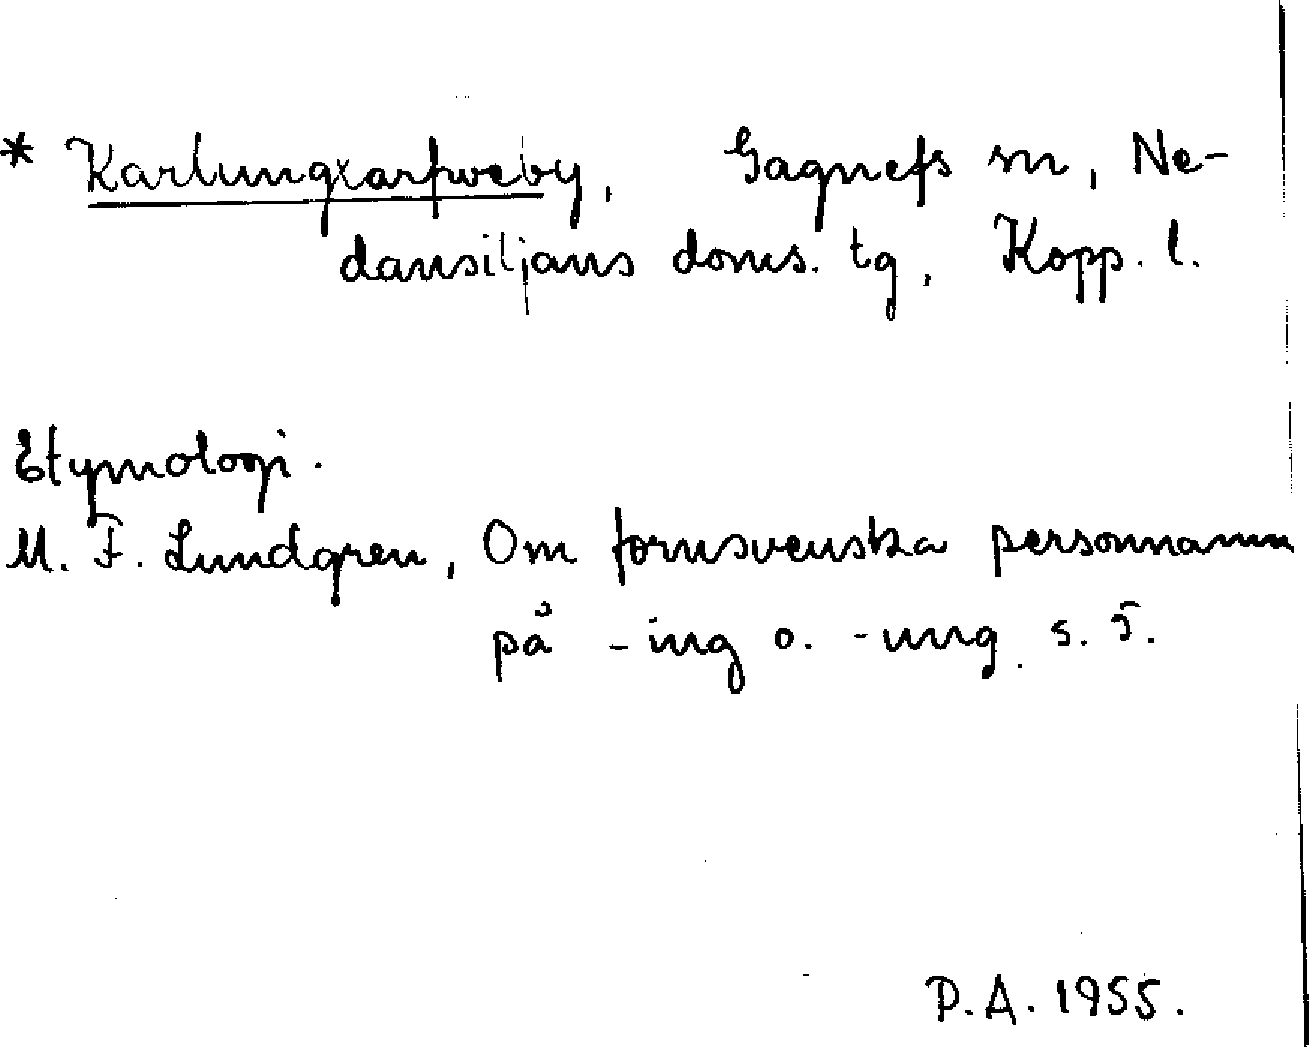 * Karlungxarfweby, Gagnefs sn, Ne-
dansiljans doms. tg, Kopp. l.
Etymologi.
M. F. Lundgren, Om fornsvenska personnamn
på -ing o. -ung. s. 5.
P.A. 1955.